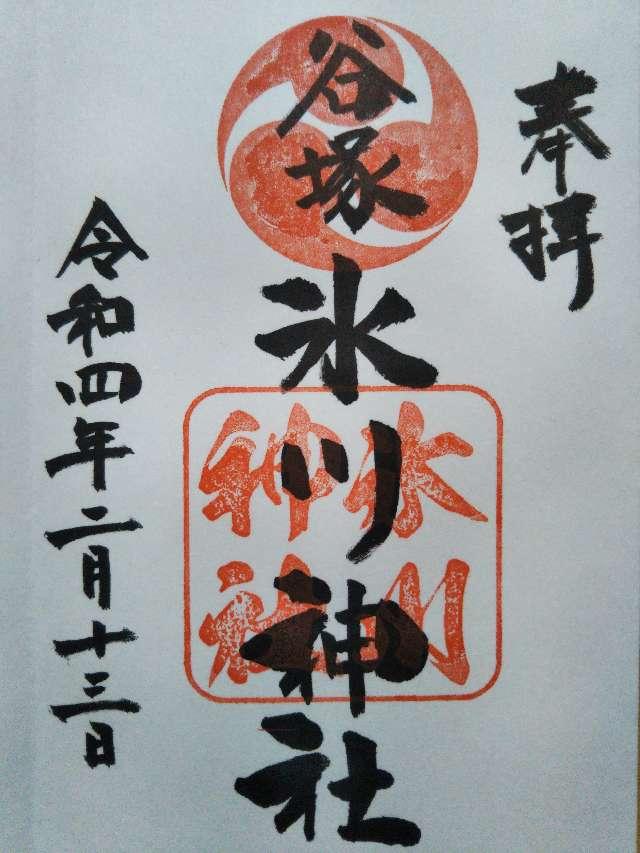 奉拝
谷塚
氷川神社
氷川
神社
令和四年二月十三日